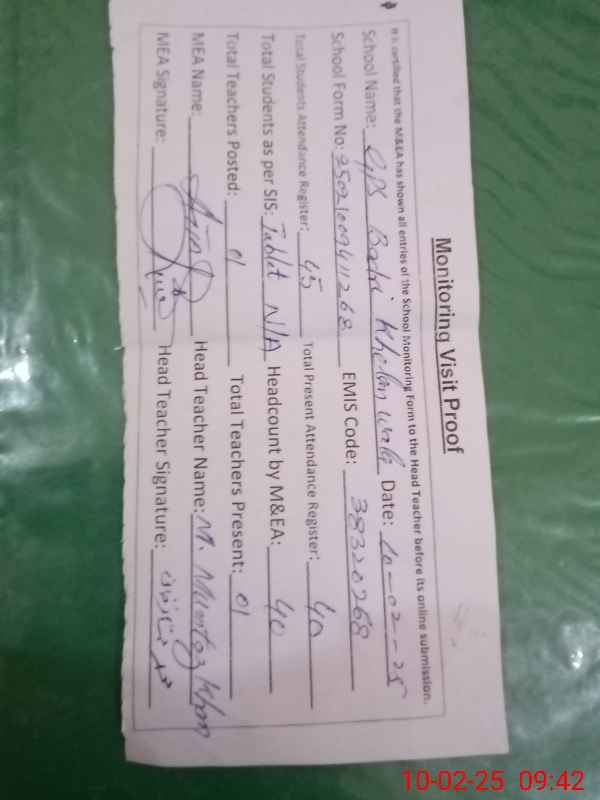 Monitoring Visit Proof
It is certified that the M&EA has shown all entries of the School Monitoring Form to the Head Teacher before its online submission.
School Name: Date: 10-02-25
School Form No: EMIS Code: 38320268
Total Students Attendance Register: 45 Total Present Attendance Register: 40
Total Students as per SIS: Tablet N/A Headcount by M&EA: 40
Total Teachers Posted: 01 Total Teachers Present: 01
MEA Name: Head Teacher Name: M. Mumtaz Khan
MEA Signature: Head Teacher Signature:
10-02-25 09:42